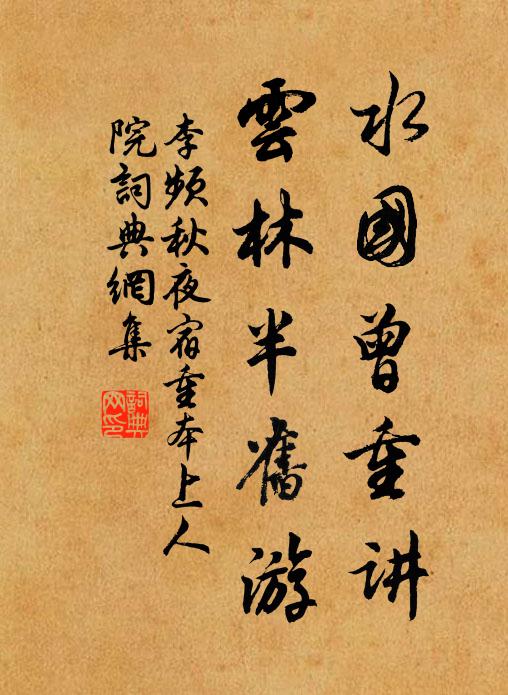 水國曾重讲
雲林半舊游
李频秋夜宿重本上人
院詞典網集
詞典
网印